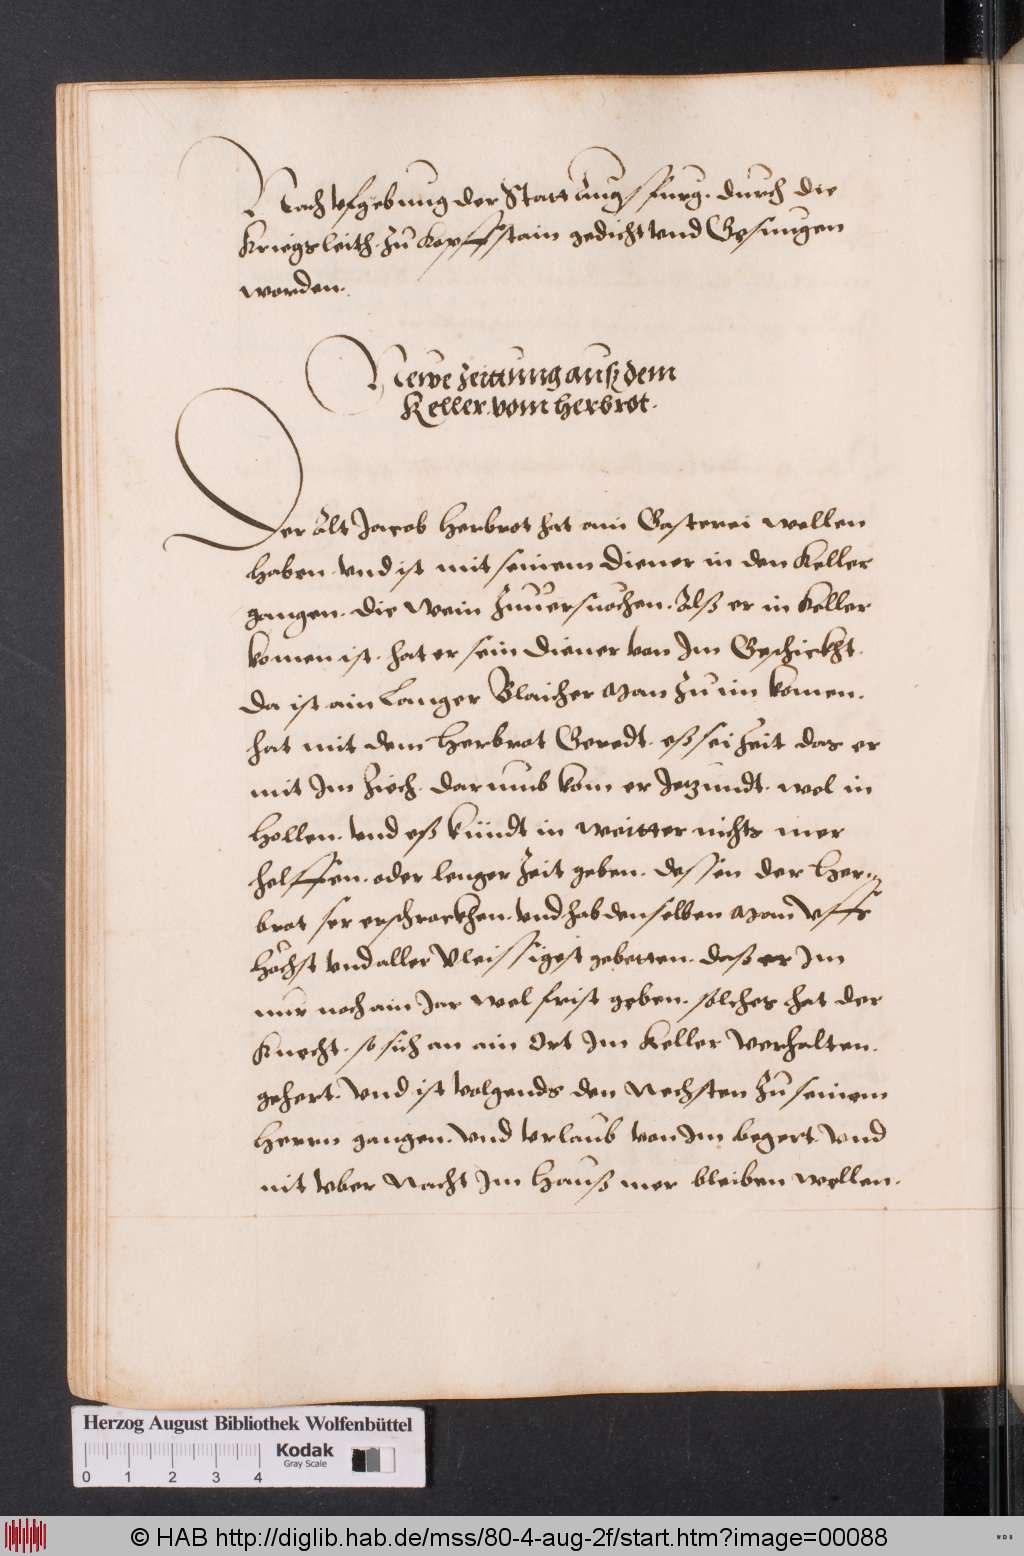 Nach vfgebung der Statt Augspurg. durch die
Kriegsleith. zu Kopffstain gedicht vnd Gesungen
worden.
Newe Zeittung auß dem
Keller vom herbrot.
Der Alt Jacob Herbrot hat ain Gasterei wellen
haben. vnd ist mit seinem diener in den Keller
gangen. die Wein zuuersuochen. Alß er in Keller
komen ist. hat er sein diener von Im Geschickht.
da ist ain Langer Blaicher Man zu im komen.
hat mit dem Herbrot Geredt. eß sei Zeit das er
mit Im Ziech. darumb kom er Jetzundt. wol in
hollen. vnd eß kündt in weitter nichts mer
helffen. oder lenger Zeit geben. dessen der Her=
brot ser erschrockhen. vnd hab denselben Man vffs
höchst vnd aller vleissigest gebetten. daß er Im
nur noch ain Jar wol frist geben. solches hat der
Knecht. so sich an ain Ort Im Keller Verhalten.
gehert. Vnd ist volgends den Nechsten zu seinem
Herrn gangen. vnd vrlaub von Im begert vnd
nit vber Nacht Im Hauß mer bleiben wellen.
Herzog August Bibliothek Wolfenbüttel
Kodak
Gray Scale
0 1 2 3 4
© HAB http://diglib.hab.de/mss/80-4-aug-2f/start.htm?image=00088